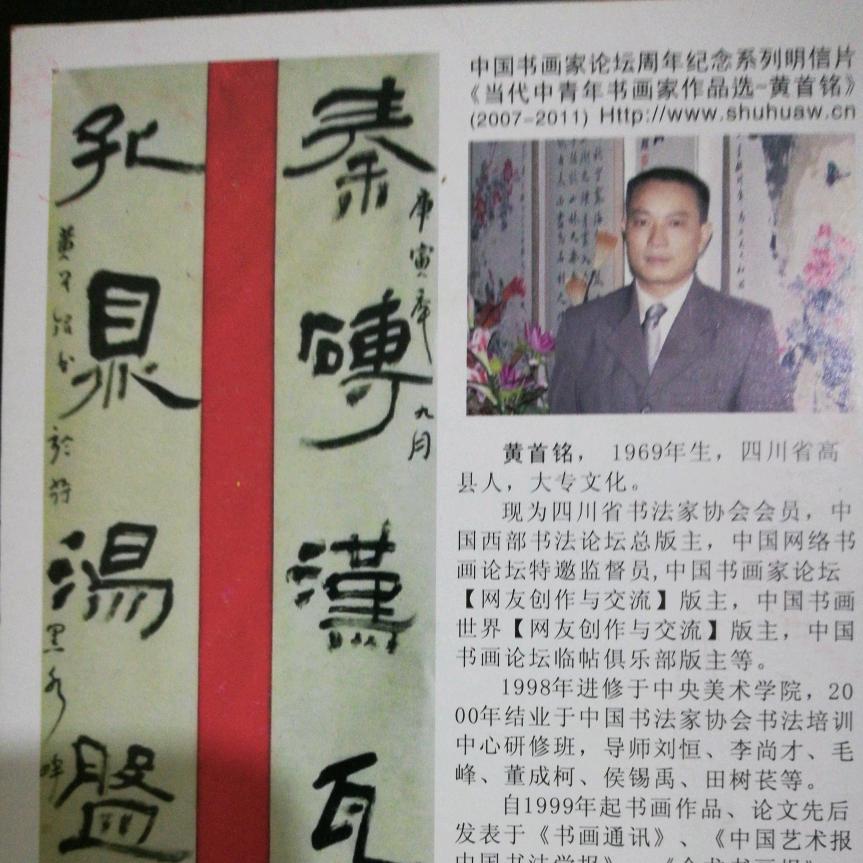 中国书画家论坛周年纪念系列明信片
《当代中青年书画家作品选-黄首铭》
(2007-2011) Http://www.shuhuaw.cn
秦磚漢瓦
庚寅年九月
孔鼎湯盤
黄首铭书於符黑水畔
黄首铭， 1969年生，四川省高
县人，大专文化。
现为四川省书法家协会会员，中
国西部书法论坛总版主，中国网络书
画论坛特邀监督员,中国书画家论坛
【网友创作与交流】版主，中国书画
世界【网友创作与交流】版主，中国
书画论坛临帖俱乐部版主等。
1998年进修于中央美术学院，20
00年结业于中国书法家协会书法培训
中心研修班，导师刘恒、李尚才、毛
峰、董成柯、侯锡禹、田树苌等。
自1999年起书画作品、论文先后
发表于《书画通讯》、《中国艺术报
中国书法学报》